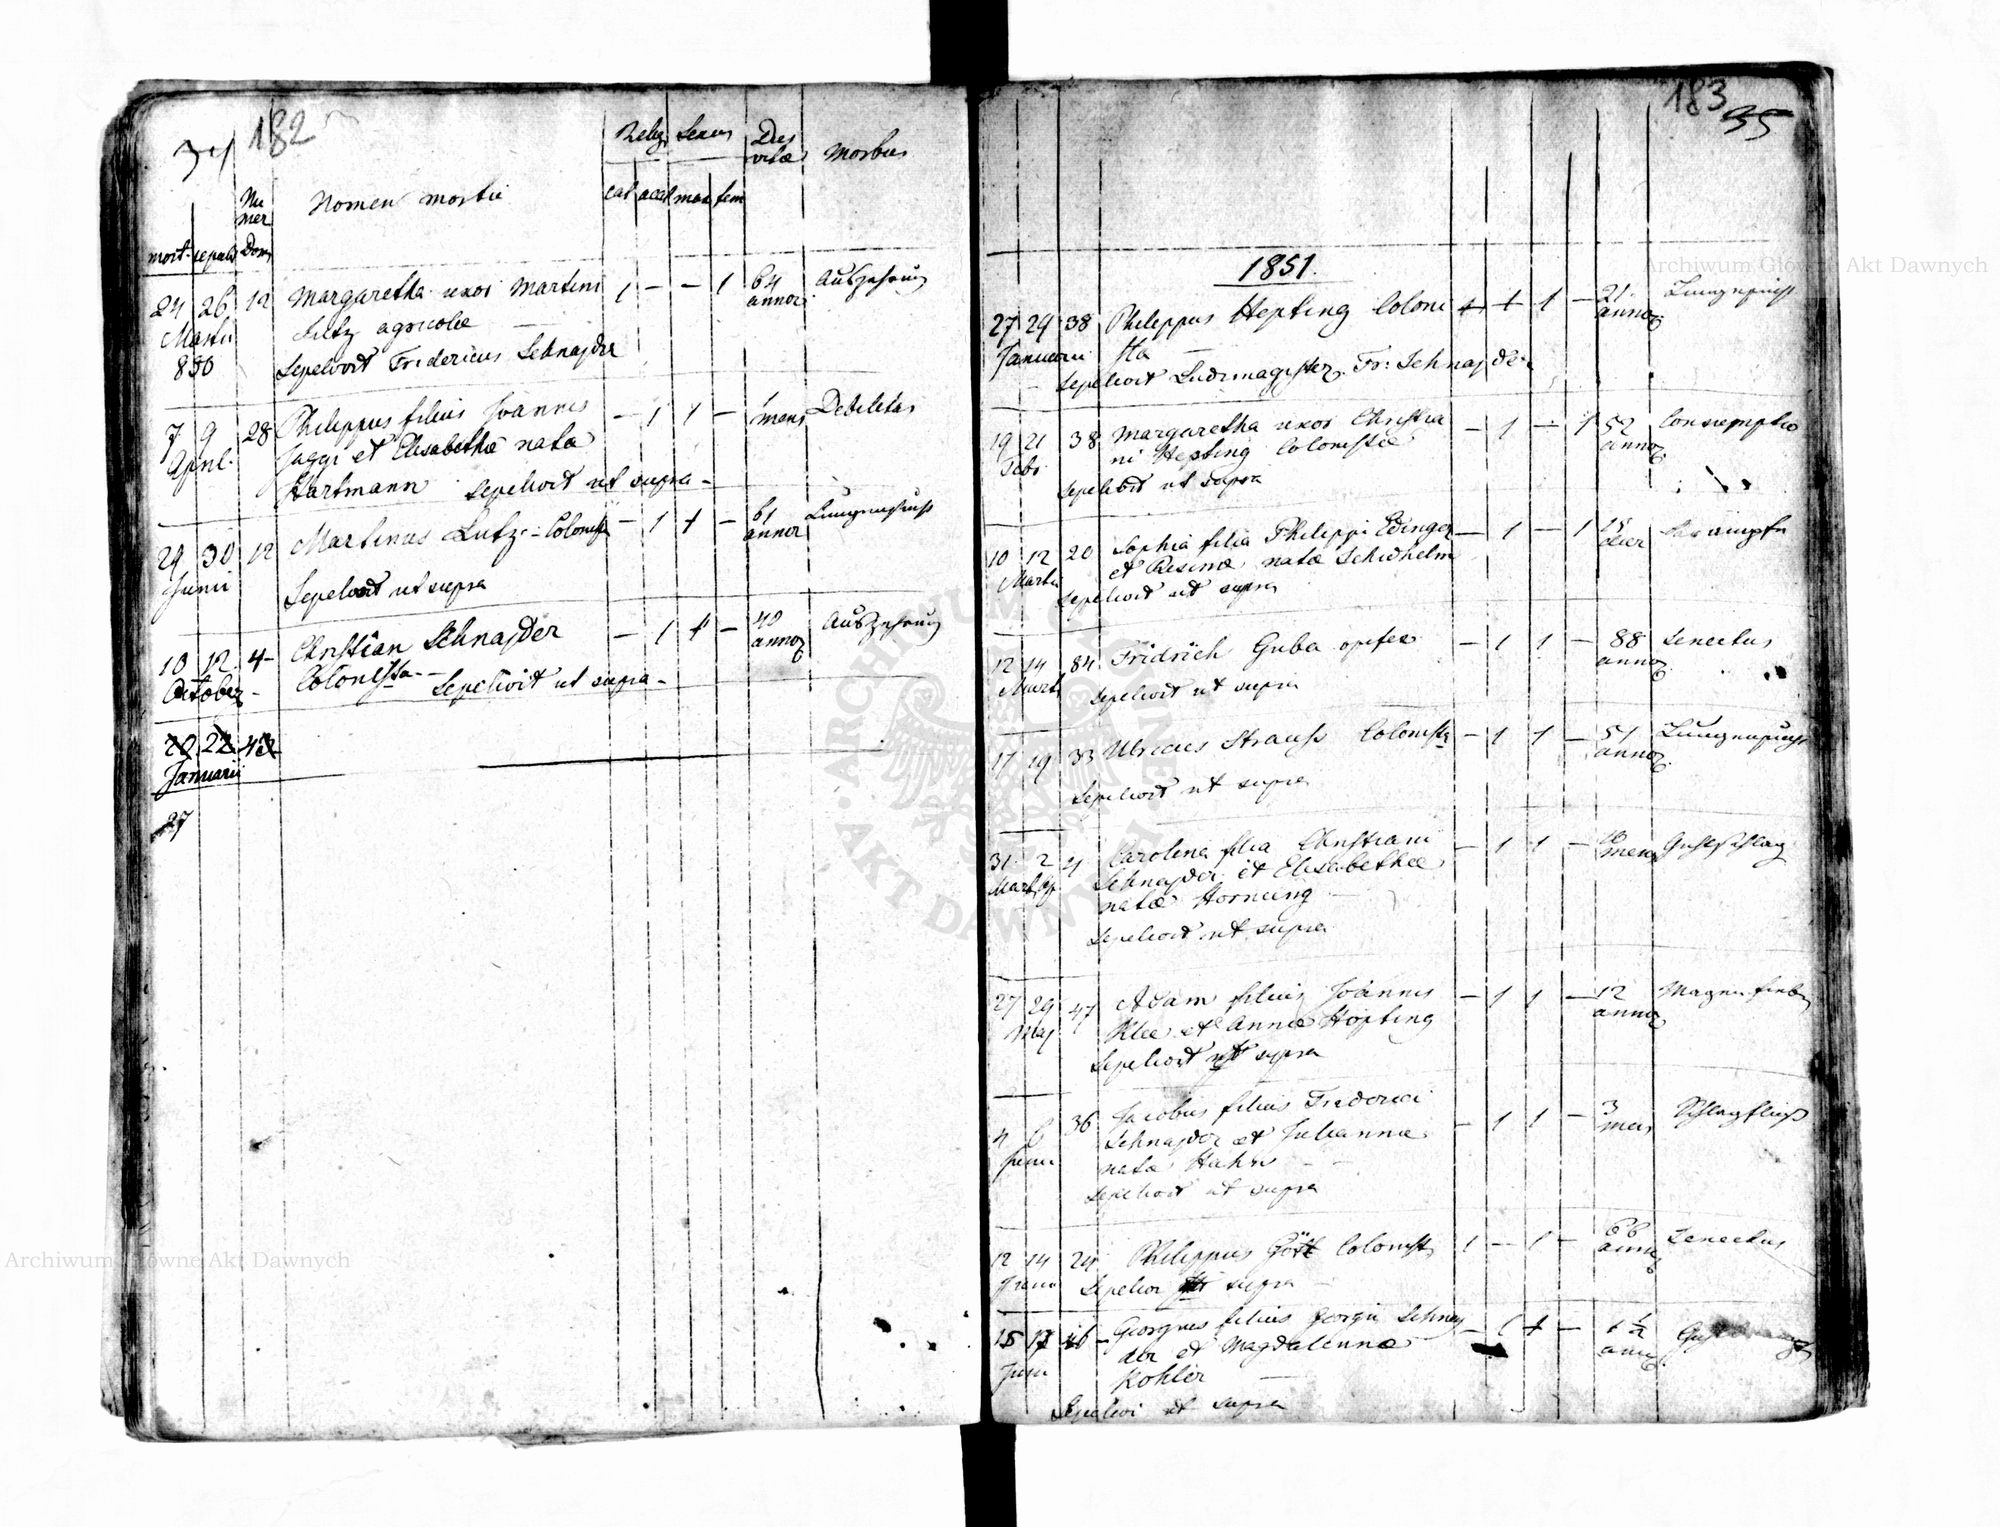 34 182
Relig Sexus Dies vitæ Morbus
Nu mer Dom Nomen mortui cat acat mas fem
mort. sepult
24 26 12 Margaretha uxor Martini 1 – – 1 64 annor. Auszehrung
Martii Lutz agricolæ
850 Sepelivit Fridericus Schnajder
7 9 28 Philippus filius Joannis – 1 1 – 1 mens Debilitas
April. Jaggi et Elisabethæ natæ
Hartmann sepelivit ut supra –
29 30 12 Martinus Lutz – Colonista – 1 1 – 61 annor Lungensucht
Junii Sepelivit ut supra
10 12 4 Christian Schnajder – 1 1 – 40 annor Auszehrung
October – Colonista – Sepelivit ut supra –
20 22 42
Januarii
27
183 35
1851.
27 29 38 Philippus Hepting Coloni 1 1 – 21. annor. Lungensucht
Januarii sta
Sepelivit Ludimagister Fr: Schnajder
19 21 38 Margaretha uxor Christia – 1 – 1 52 annor Consumptio
Febr ni Hepting Colonistæ
Sepelivit ut supra
10 12 20 Sophia filia Philippi Edinger – 1 – 1 15 dier
Martii et natæ Schidhelm
Sepelivit ut supra
12 14 84 Fridrich Guba opifex – 1 1 – 88 annor Senectus
Marti Sepelivit ut supra
17 19 33 Ulricus Strauss Colonista – 1 1 – 51 annor Lungensucht
Sepelivit ut supra
31 2 4 Carolina filia Christiani – 1 1 – mens
Mart. Ap Schnajder et Elisabethæ
natæ Hornung
Sepelivit ut supra
27 29 47 Adam filius Joannis – 1 1 – 12 annor
Maj Klee et Annæ Höpting
Sepelivit ut supra
4 6 36 Jacobus filius Friderici – 1 1 – 3 mens Schlagfluss
Junii Schnajder et Julianna
natæ Hahn
Sepelivit ut supra
12 14 24 Philippus Gött Colonista 1 – 1 – 66 annor Senectus
Junii Sepelivi ut supra
15 17 46 – Georgius filius Georgii Schney – 1 1 – 1 1/2 anni
Juni der et Magdalennæ
Kohler
Sepelivi ut supra
Archiwum Główne Akt Dawnych
Archiwum Główne Akt Dawnych
ARCHIWUM GŁÓWNE AKT DAWNYCH